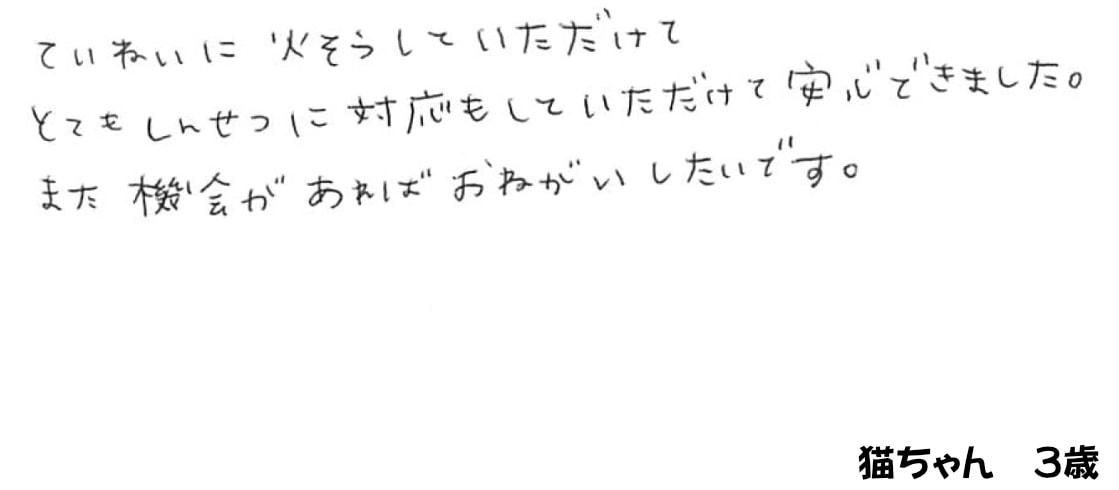 ていねいに火そうしていただけて
とてもしんせつに対応もしていただけて安心できました。
また機会があればおねがいしたいです。
猫ちゃん　3歳